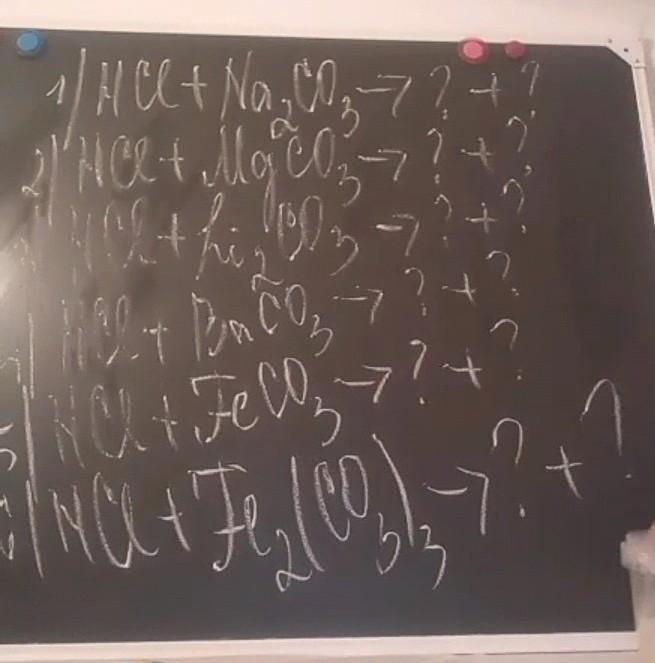 1) HCl + Na₂CO₃ → ? + ?
2) HCl + MgCO₃ → ? + ?
HCl + Li₂CO₃ → ? + ?
HCl + BaCO₃ → ? + ?
5) HCl + FeCO₃ → ? + ?
6) HCl + Fe₂(CO₃)₃ → ? + ?